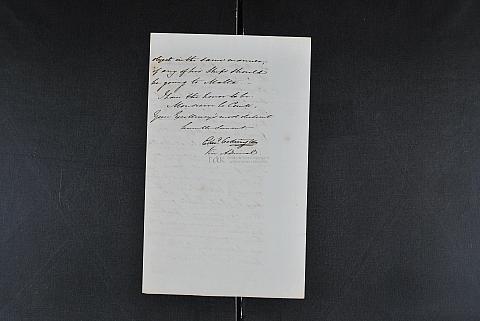 object in the same manner,
if any of his Ships should
be going to Malta
I have the honor to be
Monsieur le Comte,
Your Excellency's most obedient
humble Servant
Edwd Codrington
Vice Admiral
ΓΑΚ